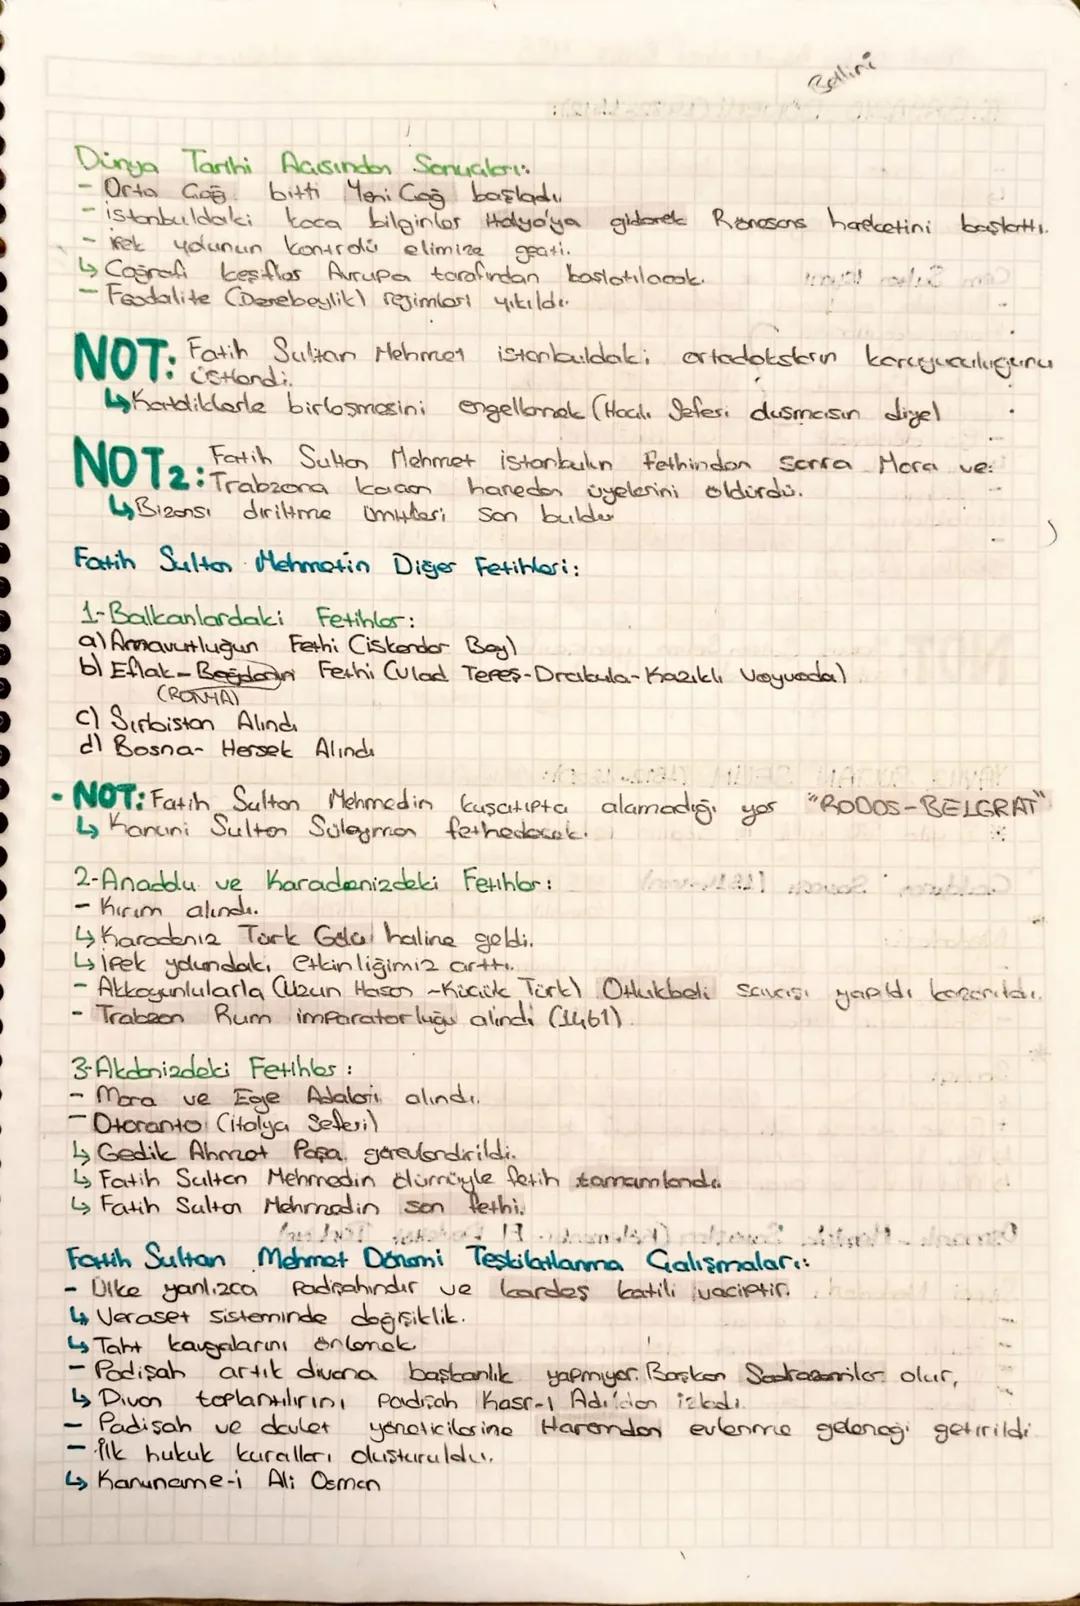 Bellini
Dünya Tarihi Açısından Sonuçları:
- Orta Çağ bitti Yeni Çağ başladı.
- istanbuldaki koca bilginler İtalya'ya giderek Rönesans hareketini başlattı.
- ipek yolunun kontrolü elimize geçti.
↳ Coğrafi keşifler Avrupa tarafından başlatılacak.
- Feodalite (Derebeylik) rejimleri yıkıldı.
NOT: Fatih Sultan Mehmet istanbuldaki ortadoksların koruyuculuğunu
üstlendi.
↳ Katoliklerle birleşmesini engellemek (Haçlı Seferi düşmesin diye)
NOT2: Fatih Sultan Mehmet istanbulun fethinden sonra Mora ve
Trabzona kaçan hanedan üyelerini öldürdü.
↳ Bizansı diriltme ümitleri son buldu
Fatih Sultan Mehmetin Diğer Fetihleri:
1-Balkanlardaki Fetihler:
a) Arnavutluğun Fethi (iskender Bey)
b) Eflak-Boğdanın Fethi (Vlad Tepeş-Drakula-Kazıklı Voyvoda)
c) Sırbistan Alındı
d) Bosna-Hersek Alındı
- NOT: Fatih Sultan Mehmedin kuşatıpta alamadığı yer "RODOS-BELGRAT"
↳ Kanuni Sultan Süleyman fethedecek.
2-Anadolu ve Karadenizdeki Fetihler:
- Kırım alındı.
↳ Karadeniz Türk Gölü haline geldi.
↳ ipek yolundaki etkinliğimiz arttı.
- Akkoyunlularla (Uzun Hasan -Küçük Türk) Otlukbeli savaşı yapıldı kazanıldı.
- Trabzon Rum imparatorluğu alındı (1461)
3-Akdenizdeki Fetihler:
- Mora ve Ege Adaları alındı.
- Otoranto (italya Seferi)
↳ Gedik Ahmet Paşa görevlendirildi.
↳ Fatih Sultan Mehmedin ölümüyle fetih tamamlandı.
↳ Fatih Sultan Mehmedin son fethi.
Fatih Sultan Mehmet Dönemi Teşkilatlanma Çalışmaları:
- Ülke yanlızca Padişahındır ve kardeş katili vaciptir.
↳ Veraset sisteminde değişiklik.
↳ Taht kavgalarını önlemek
- Padişah artık divana başkanlık yapmıyor. Başkan Sadrazamlar olur,
↳ Divan toplantılırını padişah Kasr-ı Adil'den izledi.
- Padişah ve devlet yöneticilerine Haremden evlenme geleneği getirildi
- ilk hukuk kuralları oluşturuldu.
↳ Kanuname-i Ali Osman